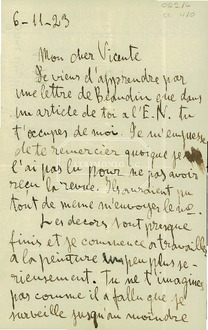 6-11-23
Mon cher Vicente
Je viens d'apprendre par
une lettre de Beaudin que dans
un article de toi a l'E.N. tu
t'occupes de moi. Je m'empresse
de te remercier quoique je
l'ai pas lu pour ne pas avoir
reçu la revue. Ils auraient pu
tout de meme m'envoyer le no.
Les decors sont presque
finis et je commence a travailler
à la peinture un peu plus se-
rieusement. Tu ne t'imagines
pas comme il a fallu que je
surveille jusqu'au moindre